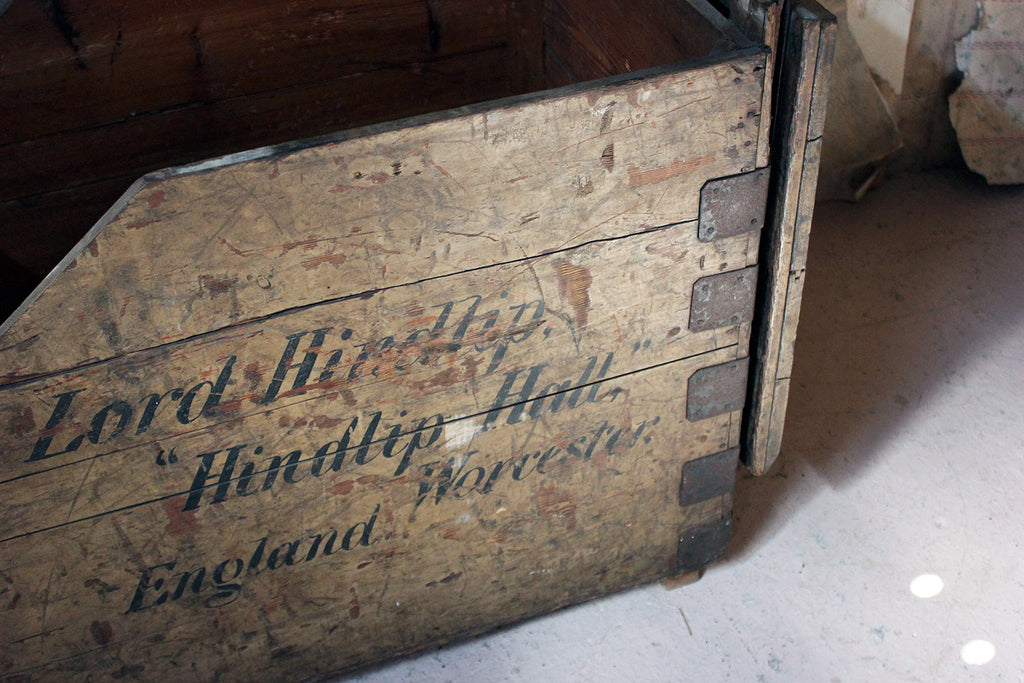 Lord Hindlip,
“Hindlip Hall,”
Worcester.
England.